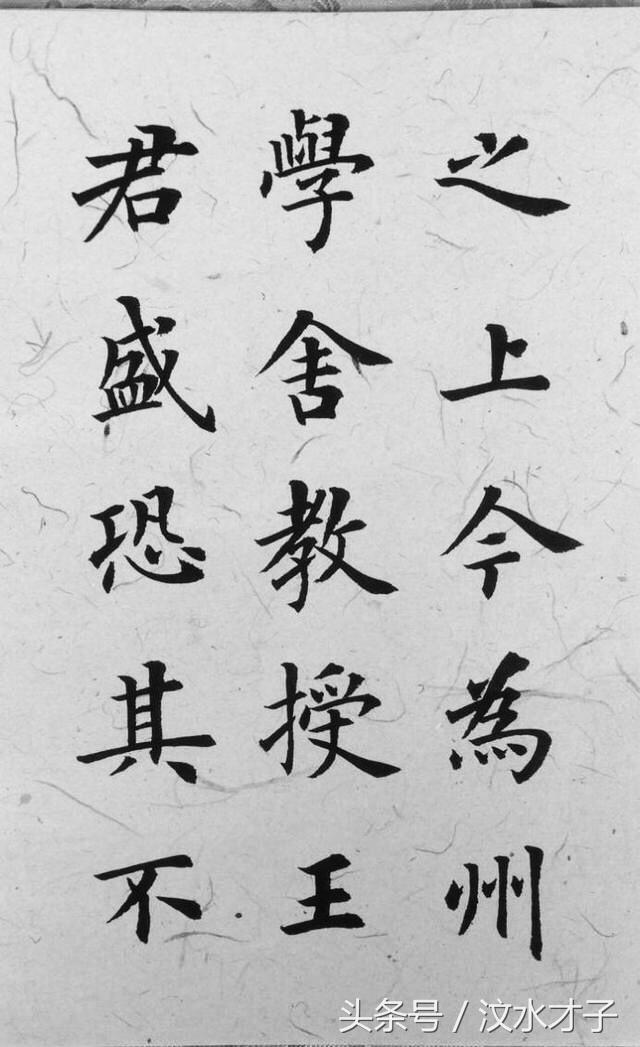 之上今為州
學舍教授王
君盛恐其不
头条号 / 汶水才子